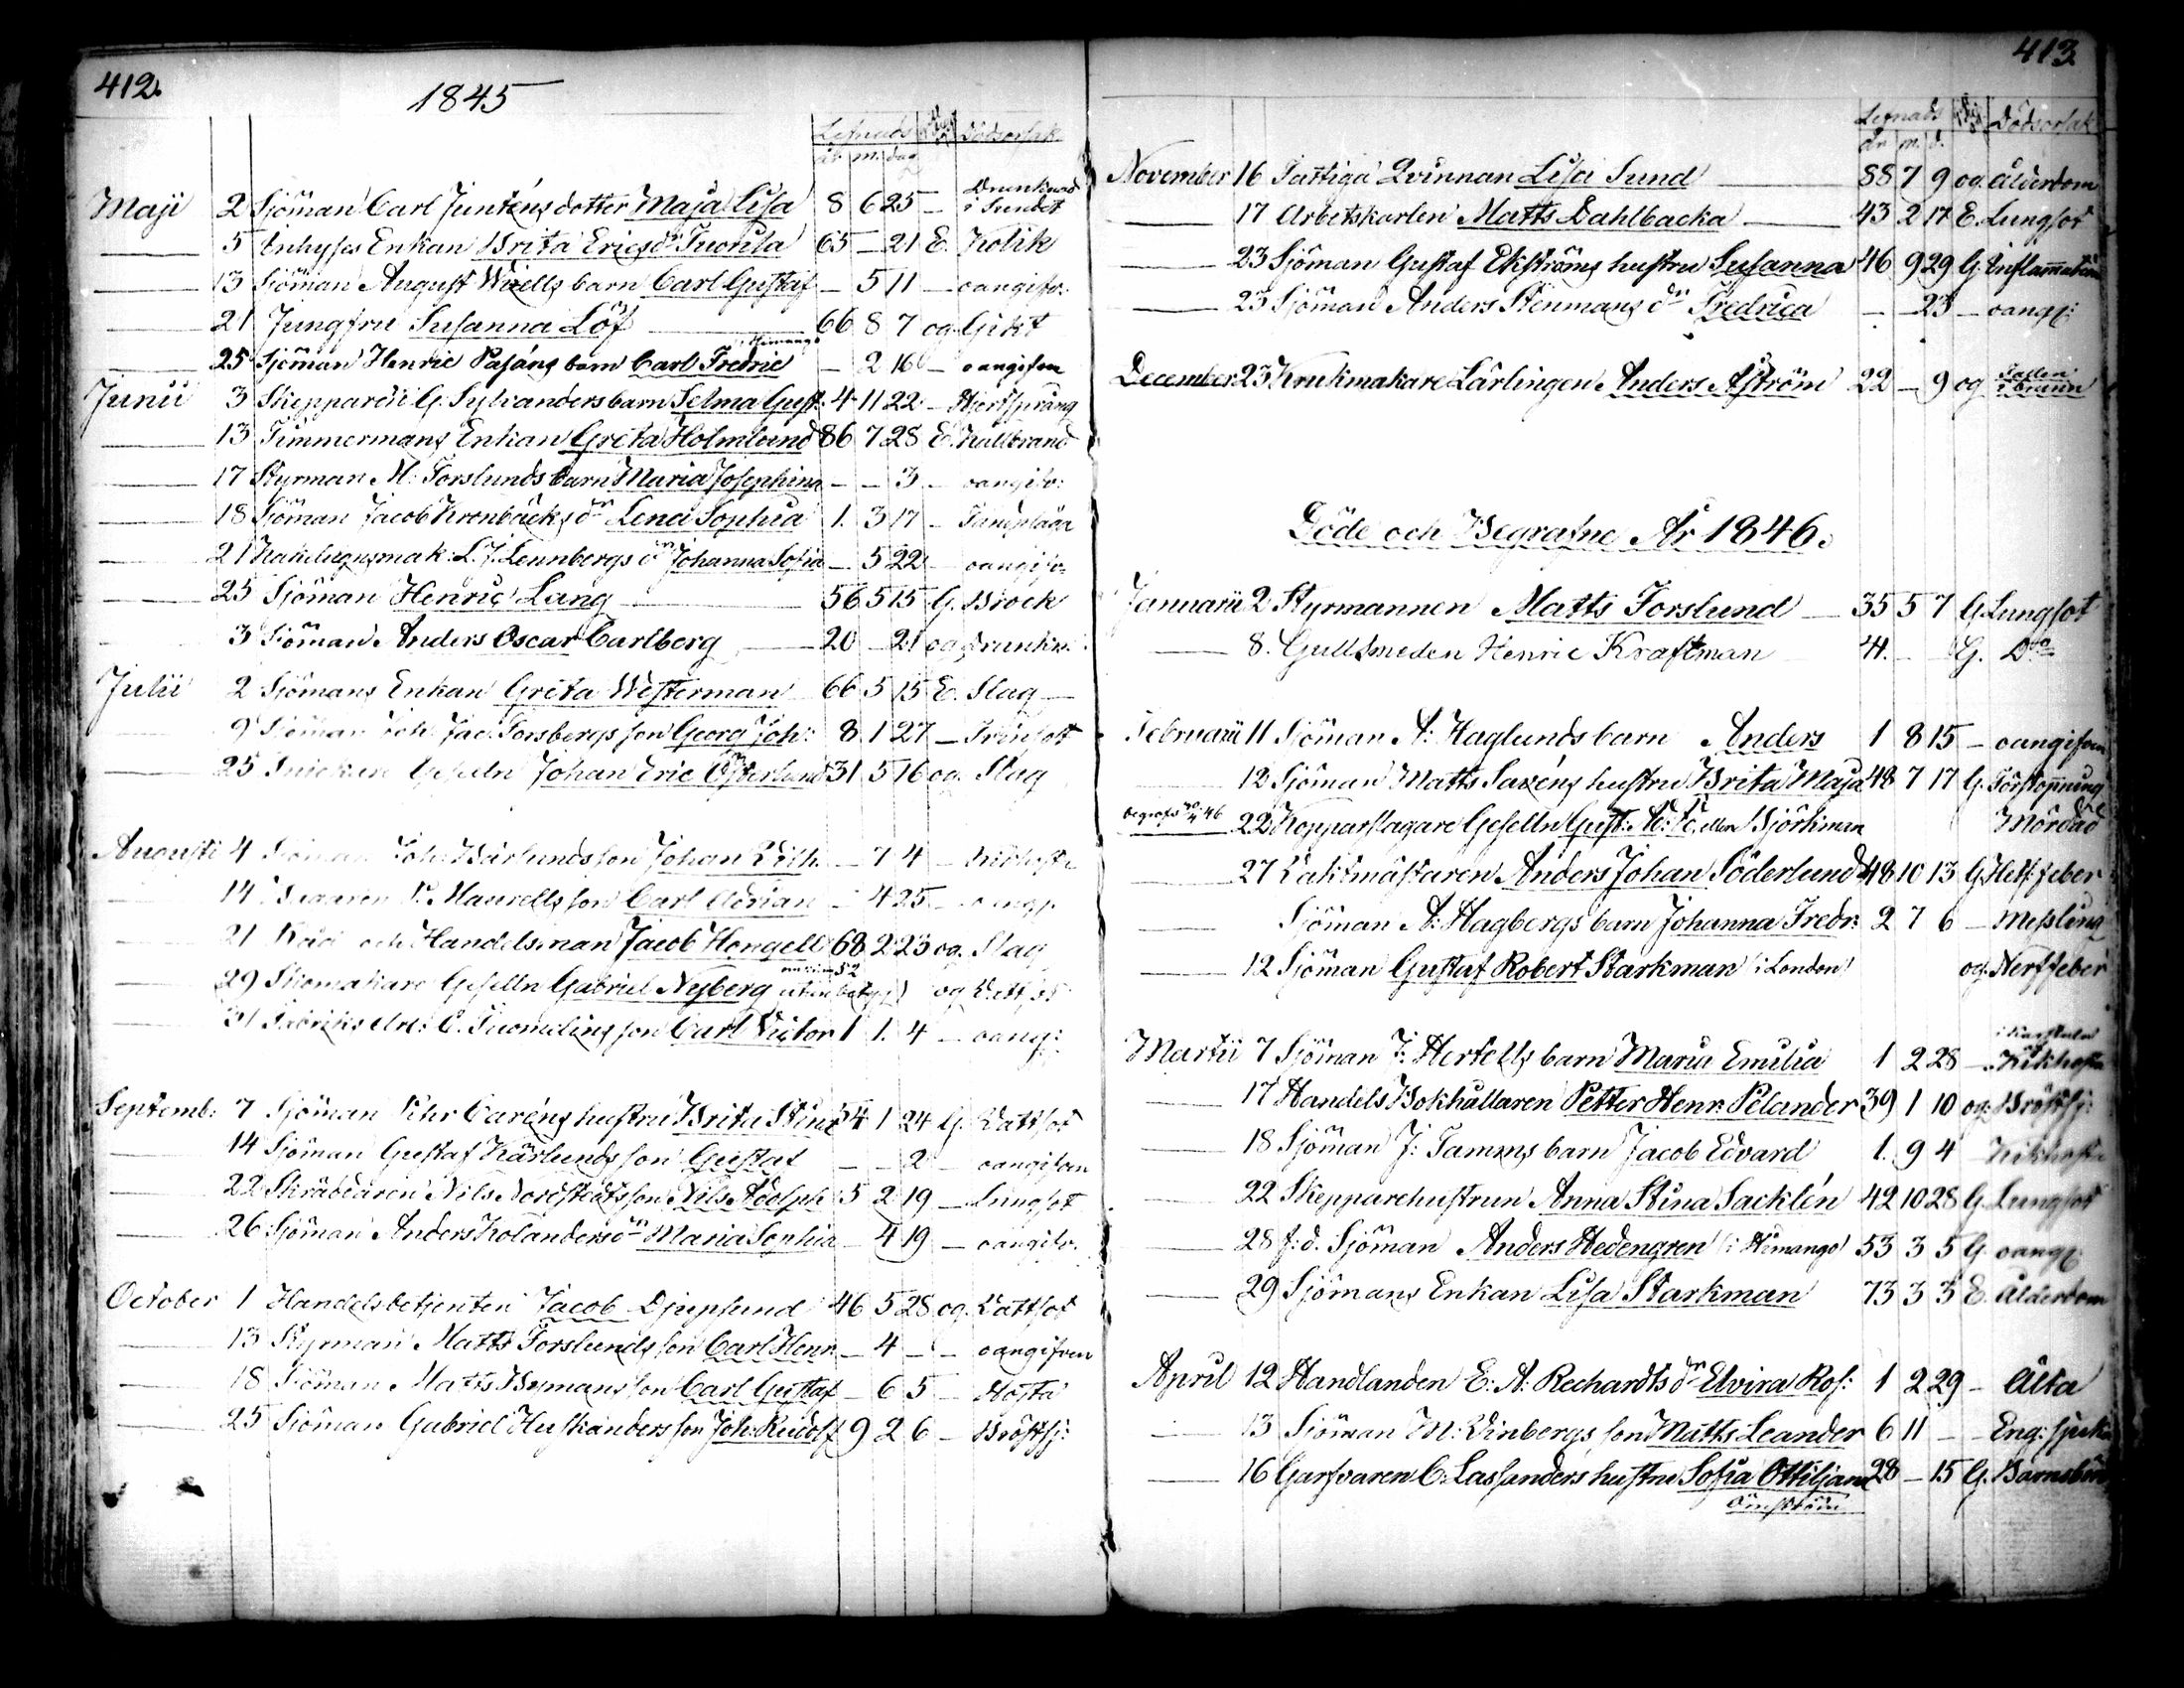 412.
1845
Lefnads Dödsorsak
år m. dag
Maji 2 Sjöman Carl Junténs dotter Maja Lisa 8 6 25 – Drunknad i Sundet
5 Inhyses Enkan Brita Ericsdr Tuorila 65 – 21 E. Kolik
13 Sjöman August Wixells barn Carl Gustaf – 5 11 – oangifv:
21 Jungfru Susanna Löf 66 8 7 og. Gikt
25 Sjöman Henric Pasáns barn Carl Fredric i Himango – 2 16 – oangifven
Junii 3 Skepparen G. Sylvanders barn Selma Gust: 4 11 22 – Hjertsprång
13 Timmermans Enkan Greta Holmlund 86 7 28 E. Kallbrand
17 Styrman M: Forslunds barn Maria Josephina – – 3 – oangifv:
18 Sjöman Jacob Kronbäcks dr Lena Sophia 1. 3 17 – Tandplåga
21 Kakelugnsmak: L. J. Lennbergs dr Johanna Sofia – 5 22 – oangifv:
25 Sjöman Henric Lang 56 5 15 G. Brock
3 Sjöman Anders Oscar Carlberg 20 – 21 og drunkn.
Julii 2 Sjömans Enkan Greta Westerman 66 5 15 E. Slag
9 Sjöman Joh. Jac. Forsbergs son Georg Joh: 8 1 27 –
25 Snickare Geselln Johan Eric Österlund 31 5 16 og. Slag
Augusti 4 Sjöman Joh: Kårlunds son Johan Wilh. – 7 4 – kikhosta
14 P. Maurells son Carl Adrian – 4 25 – oangf.
21 Råd och Handelsman Jacob Hongell 68 2 23 og. Slag
29 Skomakare Geselln Gabriel Nyberg utan betyg) og Vatts:
31 Fabriks Arb: C. Tuomelins son Carl Victor 1 1. 4 – oang:
Septemb: 7 Sjöman Pehr Caréns hustru Brita Stina 54 1 24 G. Vattsot
14 Sjöman Gustaf Kårlunds son Gustaf – – 2 – oangifven
22 Skräddaren Nils Nordstedts son Nils Adolph 5 2 19 – Lungsot
26 Sjöman Anders Kolanders dr Maria Sophia – 4 19 – oangifv.
October 1 Handelsbetjenten Jacob Djupsund 46 5 28 og. Vattsot
13 Styrman Matts Forslunds son Carl Henr. – 4 – – oangifven
18 Sjöman Matts Nymans son Carl Gustaf – 6 5 – Hosta
25 Sjöman Gabriel Huskanders son Joh: Rudolf 9 2 6 – Bröstsj:
413.
Lefnads Dödsorsak
år m. d.
November 16 Fattiga Qvinnan Lisa Sund 88 7 9 og. ålderdom
17 Arbetskarlen Matts Dahlbacka 43 2 17 E. Lungsot
23 Sjöman Gustaf Ekströms hustru Susanna 46 9 29 G. Inflammation
23 Sjöman Anders Stenmans dr Fredrica – – 23 – oangf:
December 23 Krukmakare Lärlingen Anders Åström 22 – 9 og Fallen i brunn
Döde och Begrafne År 1846.
Januarii 2 Styrmannen Matts Forslund 35 5 7 G. Lungsot
8. Gullsmeden Henric Kraftman 41. – G. Dto
Februarii 11 Sjöman A: Haglunds barn Anders 1 8 15 – oangifven
12 Sjöman Matts Saxéns hustru Brita Maja 48 7 17 G. Förstoppning
begrafs 46 22 Kopparslagare Geselln Gust: Ad: Björkman Mördad
27 Vaktmästaren Anders Johan Söderlund 48 10 13 G. Hets: feber
Sjöman A: Hagbergs barn Johanna Fredr: 2 7 6 – Messling
12 Sjöman Gustaf Robert Starkman (i London) og. Nerffeber
Martii 7 Sjöman J: Hertells barn Maria Emilia 1 2 28 – Kikhosta
17 Handels Bokhållaren Petter Henr: Pelander 39 1 10 og. Bröstsj:
18 Sjöman J: Tamms barn Jacob Edvard 1. 9 4 Kikhosta
22 Skepparehustrun Anna Stina Sacklén 42 10 28 G. Lungsot
28 f: d. Sjöman Anders Hedengren (i Himango) 53 3 5 G. oangf:
29 Sjömans Enkan Lisa Starkman 73 3 3 E. Ålderdom
April 12 Handlanden E: A: Rechardts dr Elvira Ros: 1 2 29 – Älta
13 Sjöman M: Vinbergs son Matts Leander 6 11 – – Eng: sjuka
16 Garfvaren C: Lassanders hustru Sofia Ottiljana 28 – 15 G. Barnsbörd